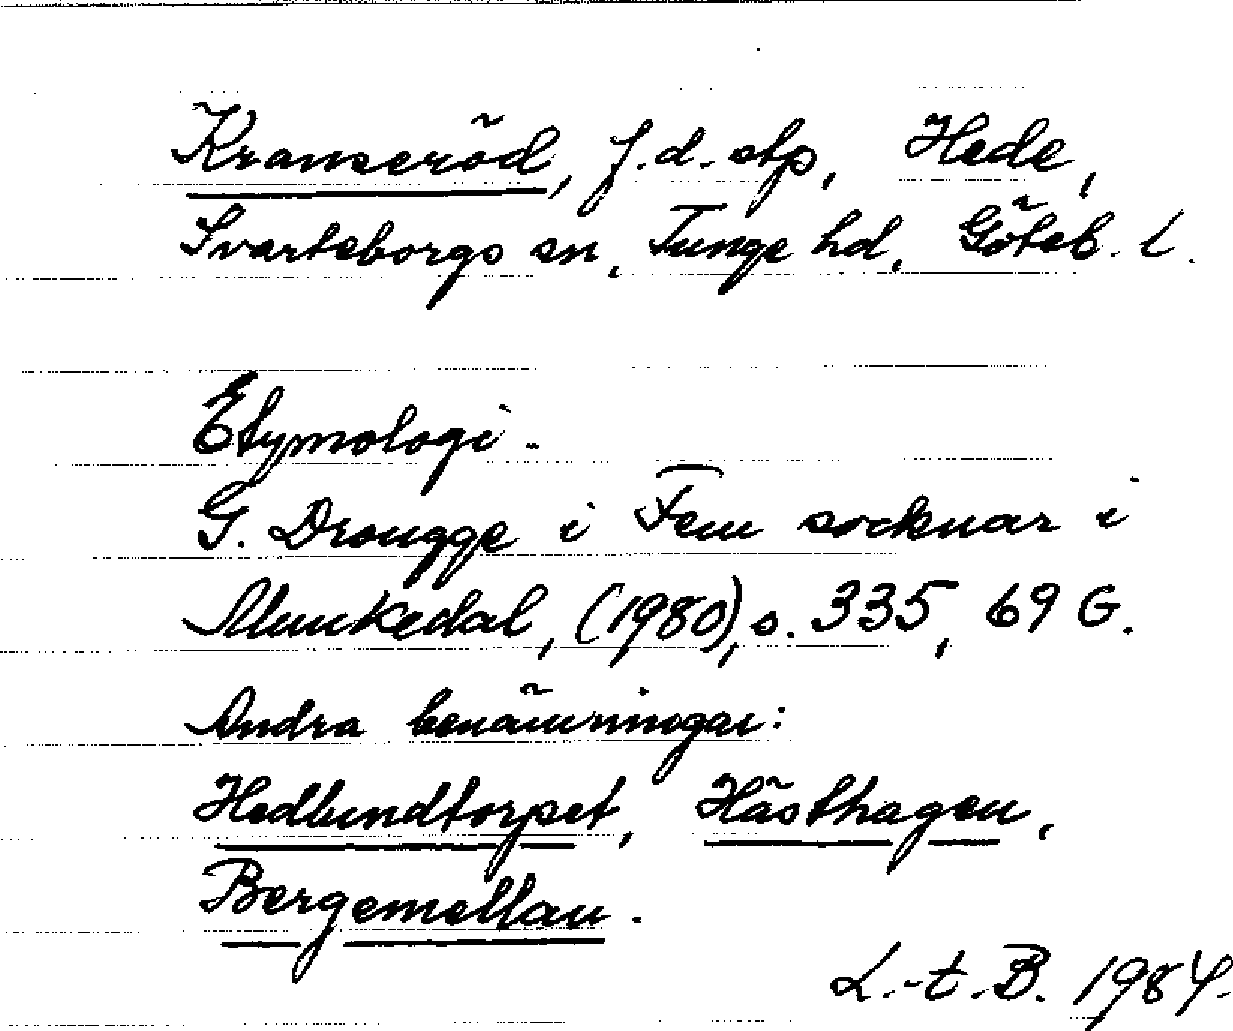 Kranseröd, f.d. stp, Hede,
Svarteborgs sn, Tunge hd, Göteb. l.
Etymologi.
G. Drougge i Fem socknar i
Munkedal, (1980), s. 335, 69 G.
Andra benämningar:
Hedlundtorpet, Hästhagen,
Bergemellan.
L.-t. B. 1984.